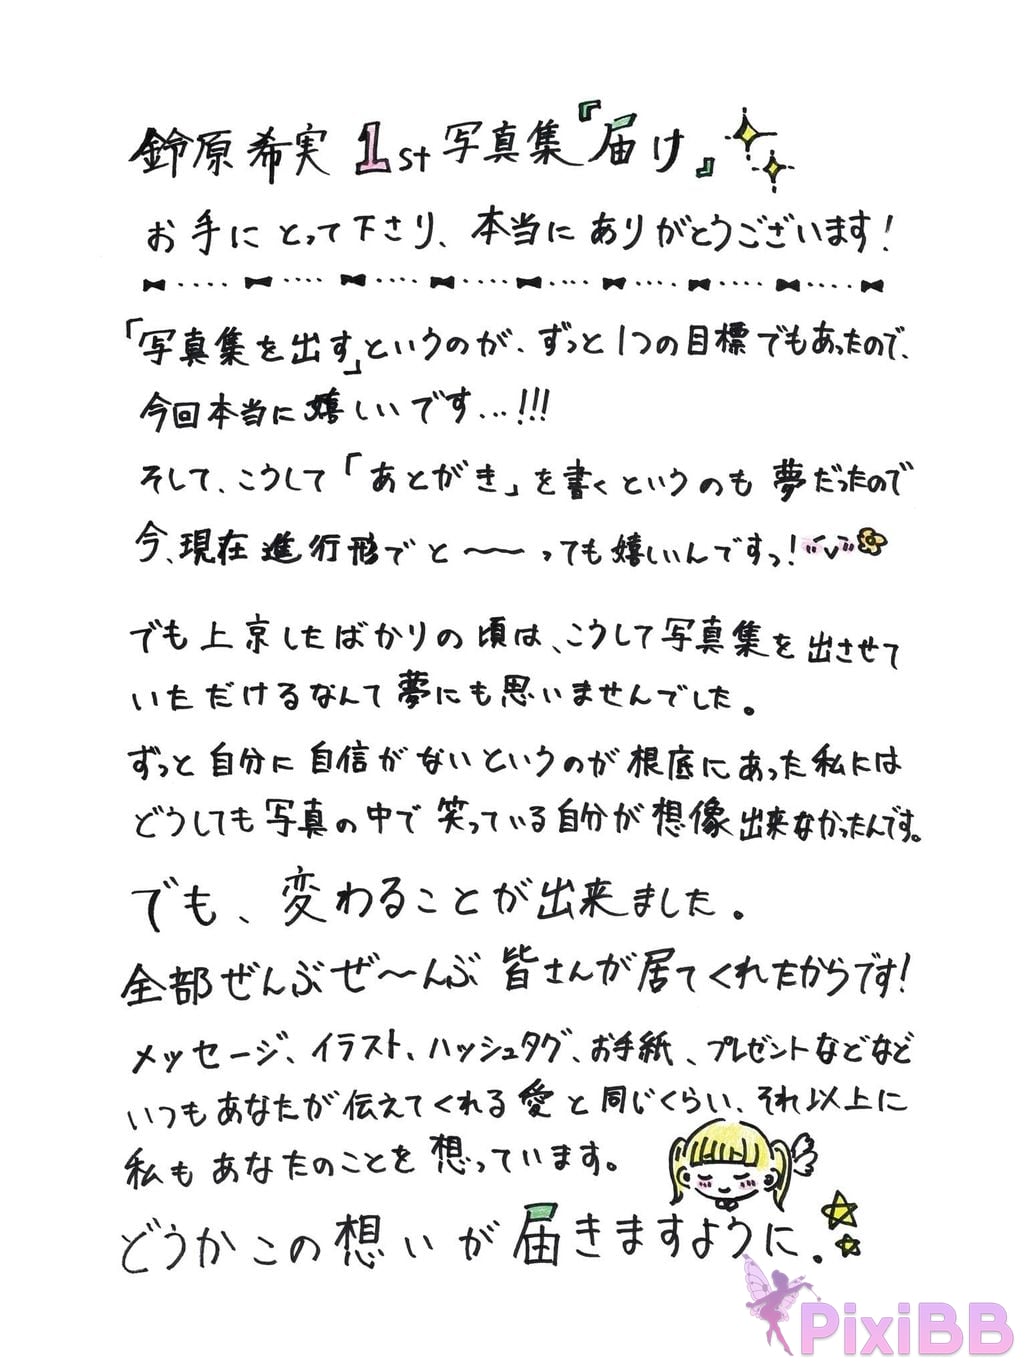 鈴原希実 1st 写真集『届け』
お手にとって下さり、本当にありがとうございます!
「写真集を出す」というのが、ずっと1つの目標でもあったので、
今回本当に嬉しいです...!!!
そして、こうして「あとがき」を書くというのも夢だったので
今、現在進行形でと〜〜っても嬉しいんですっ!
でも上京したばかりの頃は、こうして写真集を出させて
いただけるなんて夢にも思いませんでした。
ずっと自分に自信がないというのが根底にあった私には
どうしても写真の中で笑っている自分が想像出来なかったんです。
でも、変わることが出来ました。
全部ぜんぶぜ〜んぶ皆さんが居てくれたからです!
メッセージ、イラスト、ハッシュタグ、お手紙、プレゼントなどなど
いつもあなたが伝えてくれる愛と同じくらい、それ以上に
私もあなたのことを想っています。
どうかこの想いが届きますように.
PixiBB